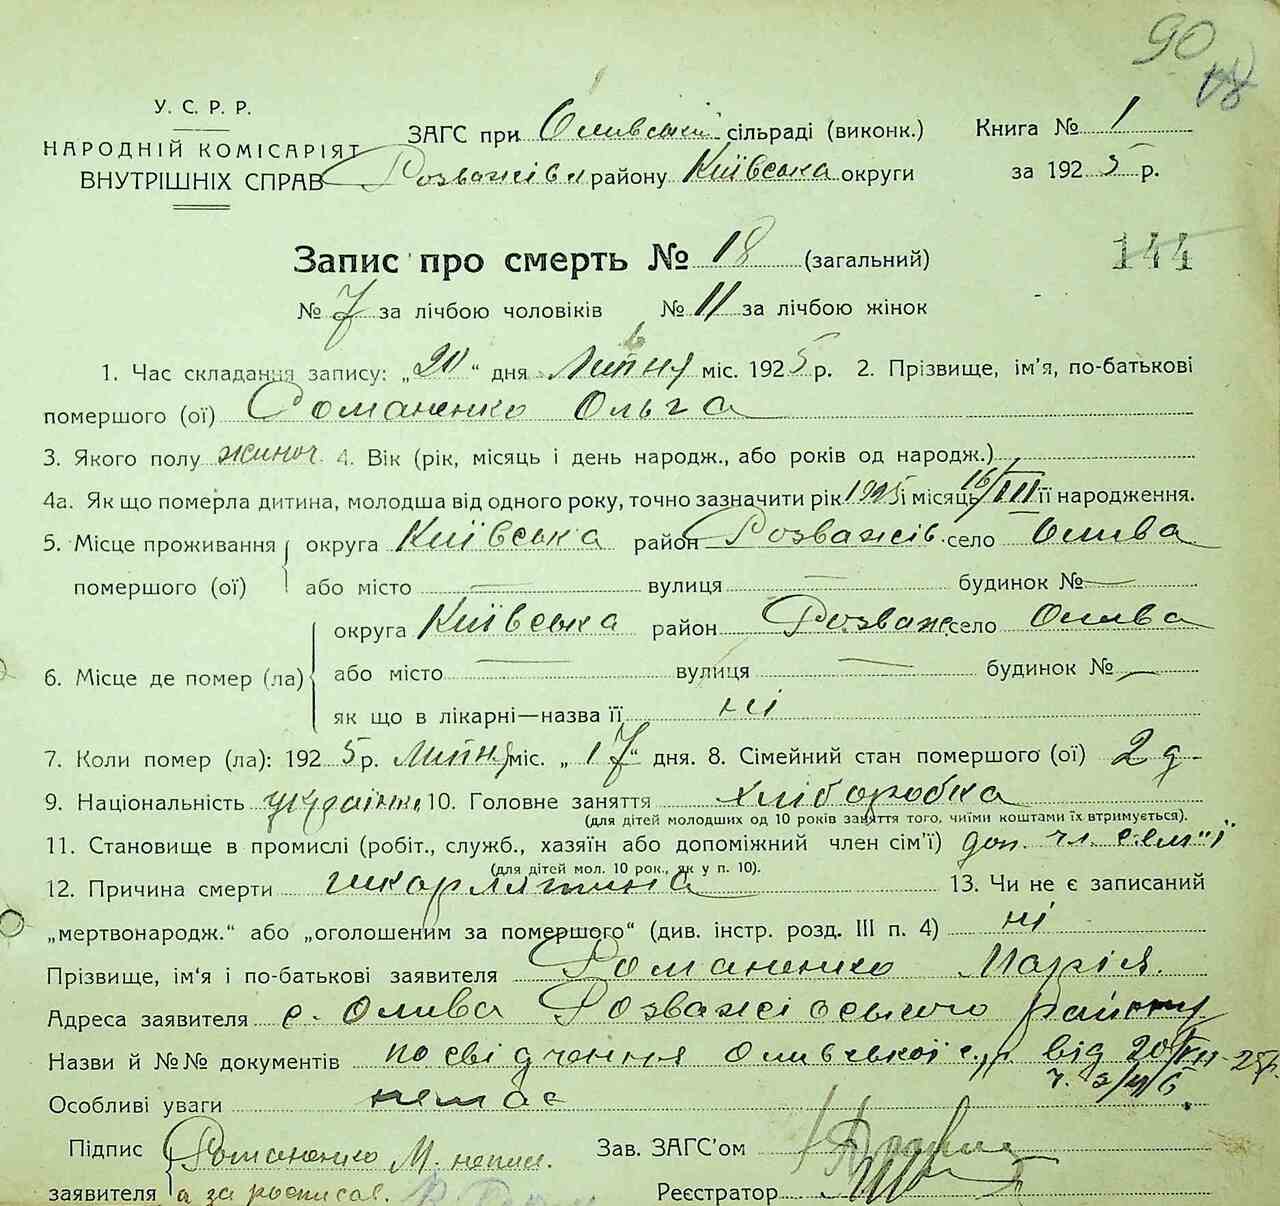 90
У. С. Р. Р.
НАРОДНІЙ КОМІСАРІЯТ
ВНУТРІШНІХ СПРАВ
ЗАГС при Оливській сільраді (виконк.)
Розважів району Київська округи
Книга № 1
за 1925 р.
144
Запис про смерть № 18 (загальний)
№ 7 за лічбою чоловіків № 11 за лічбою жінок
1. Час складання запису: „20“ дня Липня міс. 1925 р. 2. Прізвище, ім'я, по-батькові
помершого (ої) Романенко Ольга
3. Якого полу жиноч. 4. Вік (рік, місяць і день народж., або років од народж.)
4а. Як що померла дитина, молодша від одного року, точно зазначити рік 1925 і місяць 16/III її народження.
5. Місце проживання помершого (ої) округа Київська район Розважів. село Олива
або місто — вулиця — будинок № —
6. Місце де помер (ла) округа Київська район Розваж. село Олива
або місто — вулиця — будинок № —
як що в лікарні—назва її ні
7. Коли помер (ла): 1925 р. Липня міс. „17“ дня. 8. Сімейний стан помершого (ої) 2 д
9. Національність українка 10. Головне заняття хліборобка
(для дітей молодших од 10 років заняття того, чиїми коштами їх втримується).
11. Становище в промислі (робіт., служб., хазяїн або допоміжний член сім'ї) доп. чл. сем"ї
(для дітей мол. 10 рок., як у п. 10).
12. Причина смерти шкарлятина 13. Чи не є записаний
„мертвонародж.“ або „оголошеним за помершого“ (див. інстр. розд. III п. 4) ні
Прізвище, ім'я і по-батькові заявителя Романенко Марія.
Адреса заявителя с. Олива Розважівського району
Назви й №№ документів посвідчення Оливської с/р від 20/VII-25р.
Особливі уваги немає
Підпис Романенко М. непис.
заявителя а за росписав.
Зав. ЗАГС'ом
Реєстратор